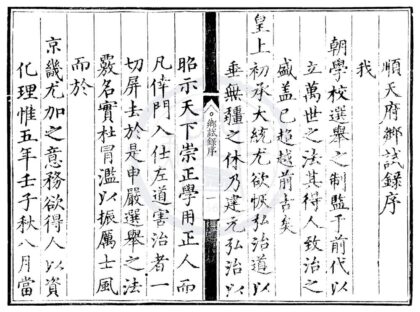 順天府鄉試錄序
我
朝學校選舉之制監于前代以
立萬世之法其得人致治之
盛盖已超越前古矣
皇上初承大統尤欲恢弘治道以
垂無疆之休乃建元弘治以
鄉試錄序
一
昭示天下崇正學用正人而
凡倖門入仕左道害治者一
切屏去於是申嚴選舉之法
覈名實杜冒濫以振厲士風
而於
京畿尤加之意務欲得人以資
化理惟五年壬子秋八月當